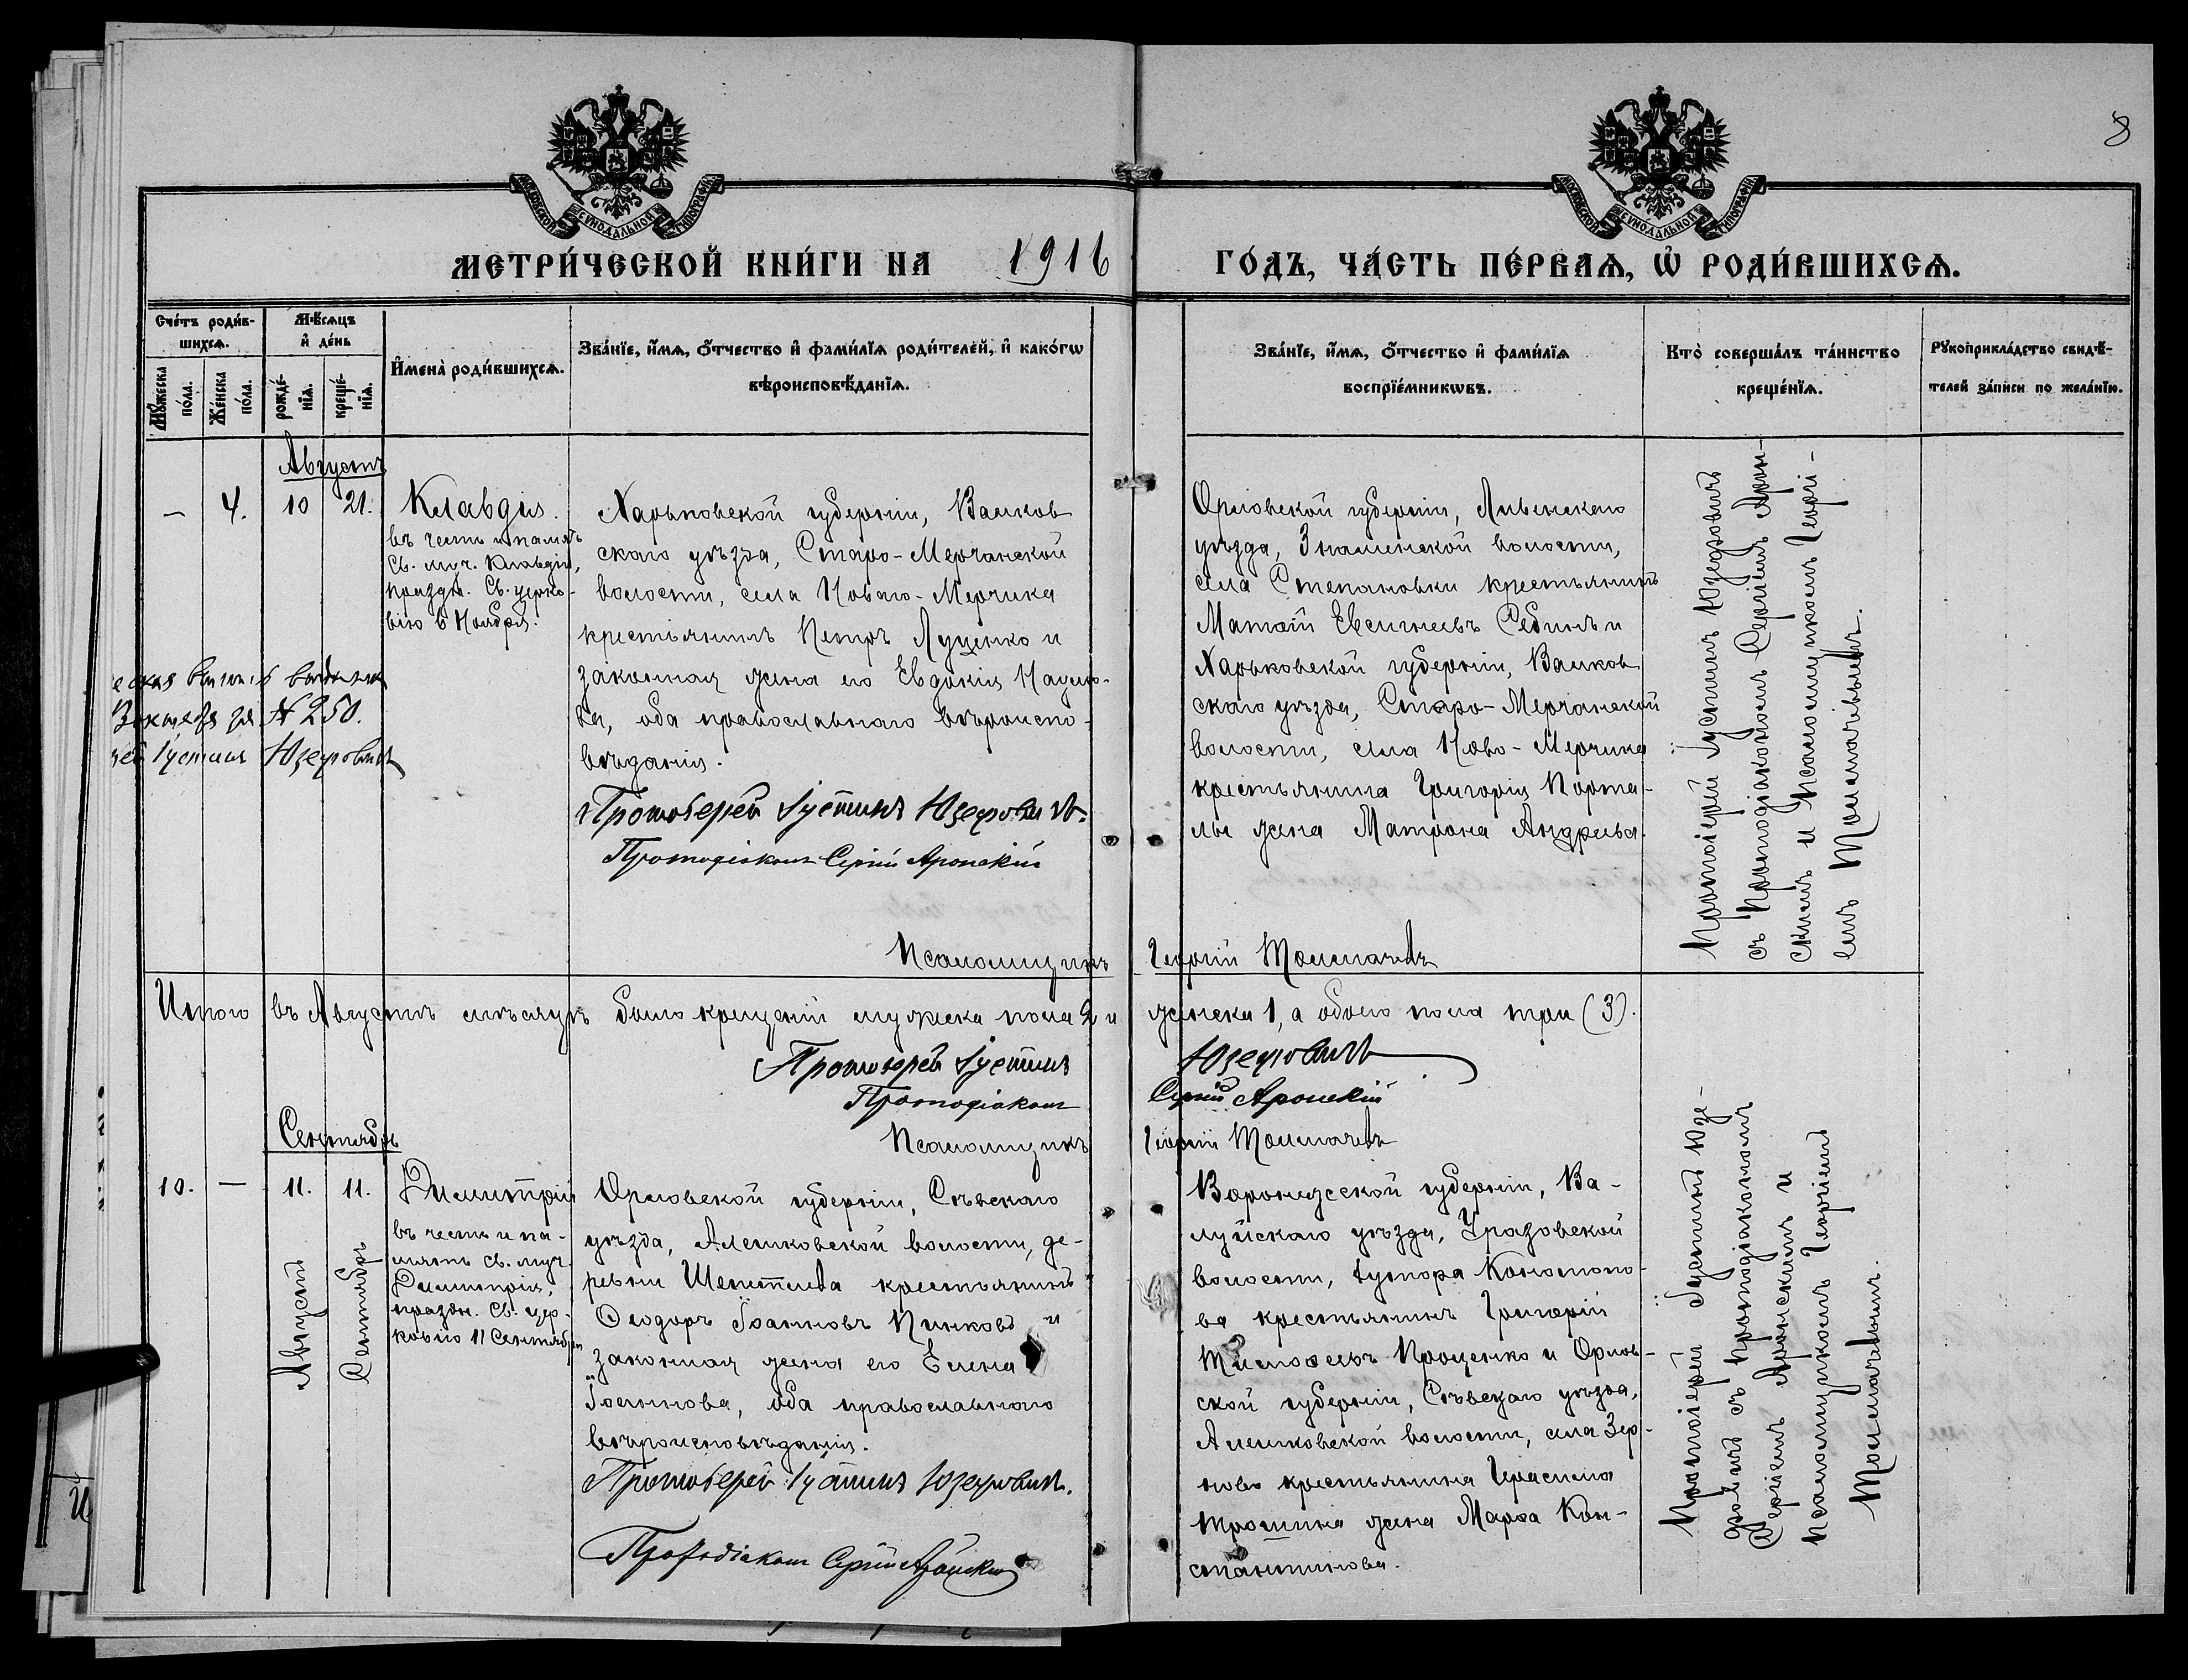 8
МОСКОВСКОЙ СѴНОДАЛЬНОЙ ТИПОГРАФІИ
МОСКОВСКОЙ СѴНОДАЛЬНОЙ ТИПОГРАФІИ
МЕТРИ́ЧЕСКОЙ КНИ́ГИ НА 1916 ГО́ДЪ, ЧА́СТЬ ПЕ́РВАѦ, Ѡ҆ РОДИ́ВШИХСѦ.
Сче́тъ роди́в-
шихсѧ.
Мꙋ́жеска
по́ла.
Же́нска
по́ла.
Мѣ́сѧцъ
и҆ де́нь
рожде́-
нїѧ.
креще́-
нїѧ.
И҆мена̀ роди́вшихсѧ.
Зва́нїе, и҆́мѧ, ѻ҆́тчество и҆ фами́лїѧ роди́телей, и҆ како́гѡ
вѣроисповѣ́данїѧ.
Зва́нїе, и҆́мѧ, ѻ҆́тчество и҆ фами́лїѧ
воспрїе́мникѡвъ.
Кто̀ соверша́лъ та́инство
креще́нїѧ.
Рꙋкоприкла́дство свидѣ́-
телей за́писи по жела́нїю.
Августъ
— 4. 10 21.
Клавдія.
въ честь и память
Св. муч. Клавдіи,
праздн. Св. церко-
вію 6 Ноября.
№ 250.
Іустинъ Юзефовичъ
Харьковской губерніи, Валков
скаго уѣзда, Старо-Мерчанской
волости, села Новаго-Мерчика
крестьянинъ Петръ Луценко и
законная жена его Евдокія Наумо-
ва, оба православнаго вѣроиспо-
вѣданія.
Протоіерей Іустинъ Юзефовичъ.
Протодіаконъ Сергій Аронскій
Псаломщикъ Георгій Толмачевъ
Орловской губерніи, Ливенскаго
уѣзда, Знаменской волости,
села Степановки крестьянинъ
Матѳій Евсигнеевъ Сединъ и
Харьковской губерніи, Валков
скаго уѣзда, Старо-Мерчанской
волости, села Ново-Мерчика
крестьянина Григорія Порта-
лы жена Матрона Андреева.
Протоіерей Іустинъ Юзефовичъ
съ Протодіакономъ Сергіемъ Арон-
скимъ и Псаломщикомъ Георгі-
емъ Толмачевымъ.
Итого въ Августѣ мѣсяцѣ было крещеній мужеска пола 2 и женска 1, а обоего пола три (3).
Протоіерей Іустинъ Юзефовичъ
Протодіаконъ Сергій Аронскій
Псаломщикъ Георгій Толмачевъ
Сентябрь
10. — 11. 11.
Августъ
Сентябрь
Димитрій
въ честь и па-
мять св. муч.
Димитрія,
праздн. Св. цер-
ковію 11 Сентября
Орловской губерніи, Сѣвскаго
уѣзда, Алешковской волости, де-
ревни Шептиева крестьянинъ
Ѳеодоръ Іоанновъ Пинковъ и
законная жена его Елена
Іоаннова, оба православнаго
вѣроисповѣданія.
Протоіерей Іустинъ Юзефовичъ.
Протодіаконъ Сергій Аронскій
Воронежской губерніи, Ва-
луйскаго уѣзда, Уразовской
волости, хутора Конопопо-
ва крестьянинъ Григорій
Тимоѳеевъ Проценко и Орлов-
ской губерніи, Сѣвскаго уѣзда,
Алешковской волости, села Зер-
ново крестьянина Герасима
Трошина жена Марѳа Кон-
стантинова.
Протоіерей Іустинъ Юзе-
фовичъ съ Протодіакономъ
Сергіемъ Аронскимъ и
Псаломщикомъ Георгіемъ
Толмачевымъ.